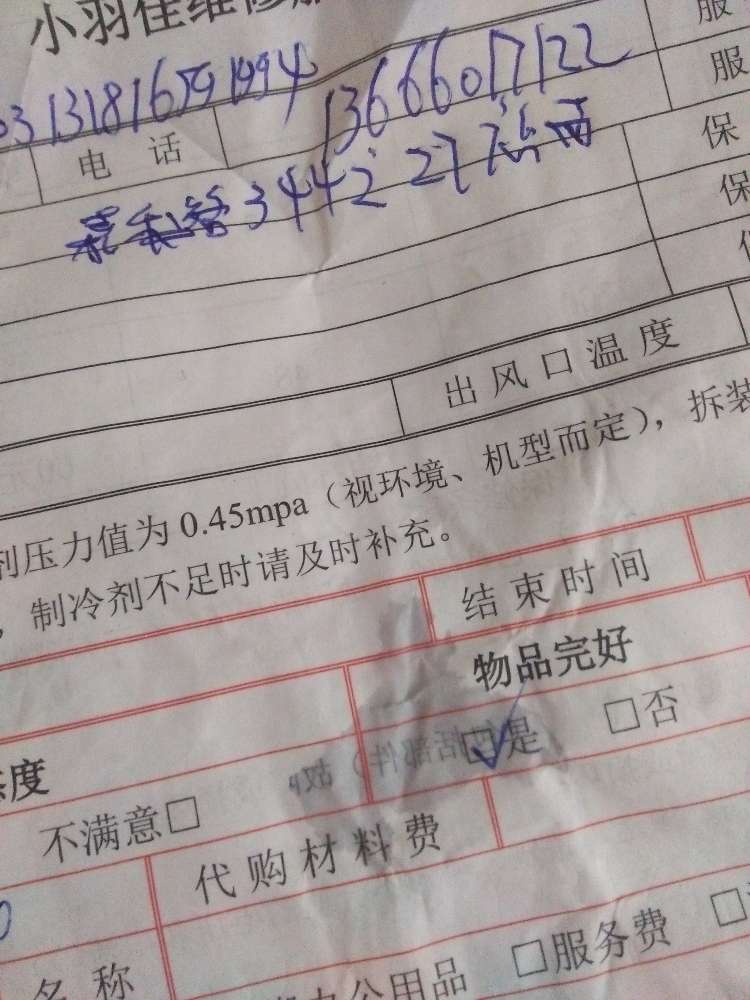 小羽佳维修服
服
03 13181659994 13666017122
电 话
服
3442 27
保
保
出风口温度
剂压力值为0.45mpa（视环境、机型而定），拆装
，制冷剂不足时请及时补充。
结束时间
物品完好
☑是 □否
度
不满意□
代购材料费
名 称
办公用品 □服务费 □